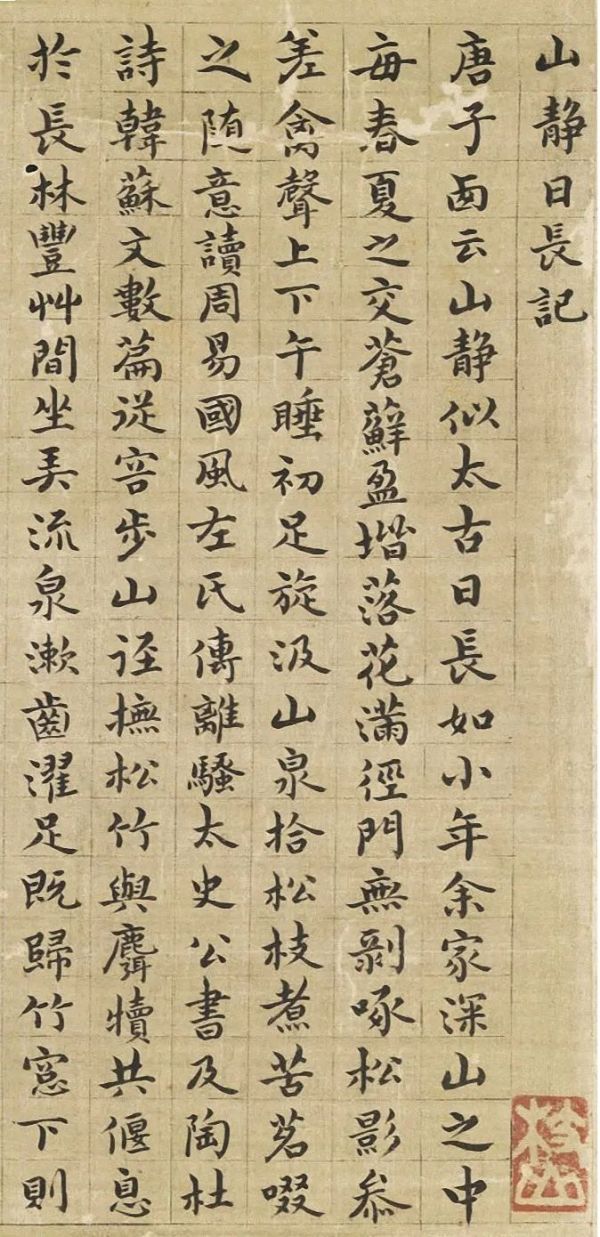 山静日長記
唐子西云山静似太古日長如小年余家深山之中
毎春夏之交蒼蘚盈堦落花滿徑門無剝啄松影叅
差禽聲上下午睡初足旋汲山泉拾松枝煮苦茗啜
之随意讀周易國風左氏傳離騷太史公書及陶杜
詩韓蘇文數篇從容步山迳撫松竹與麛犢共偃息
於長林豐艸間坐弄流泉漱齒濯足既歸竹窓下則